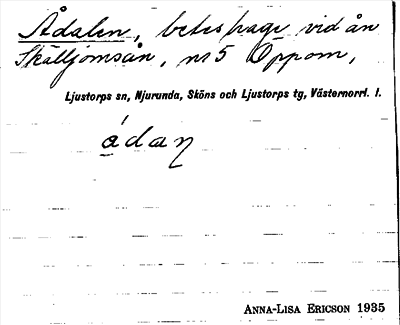 Ådalen, beteshage vid ån
Skälljomsån, nr 5 Oppom,
Ljustorps sn, Njurunda, Sköns och Ljustorps tg, Västernorrl. l.
ádaꞃ
ANNA-LISA ERICSON 1935